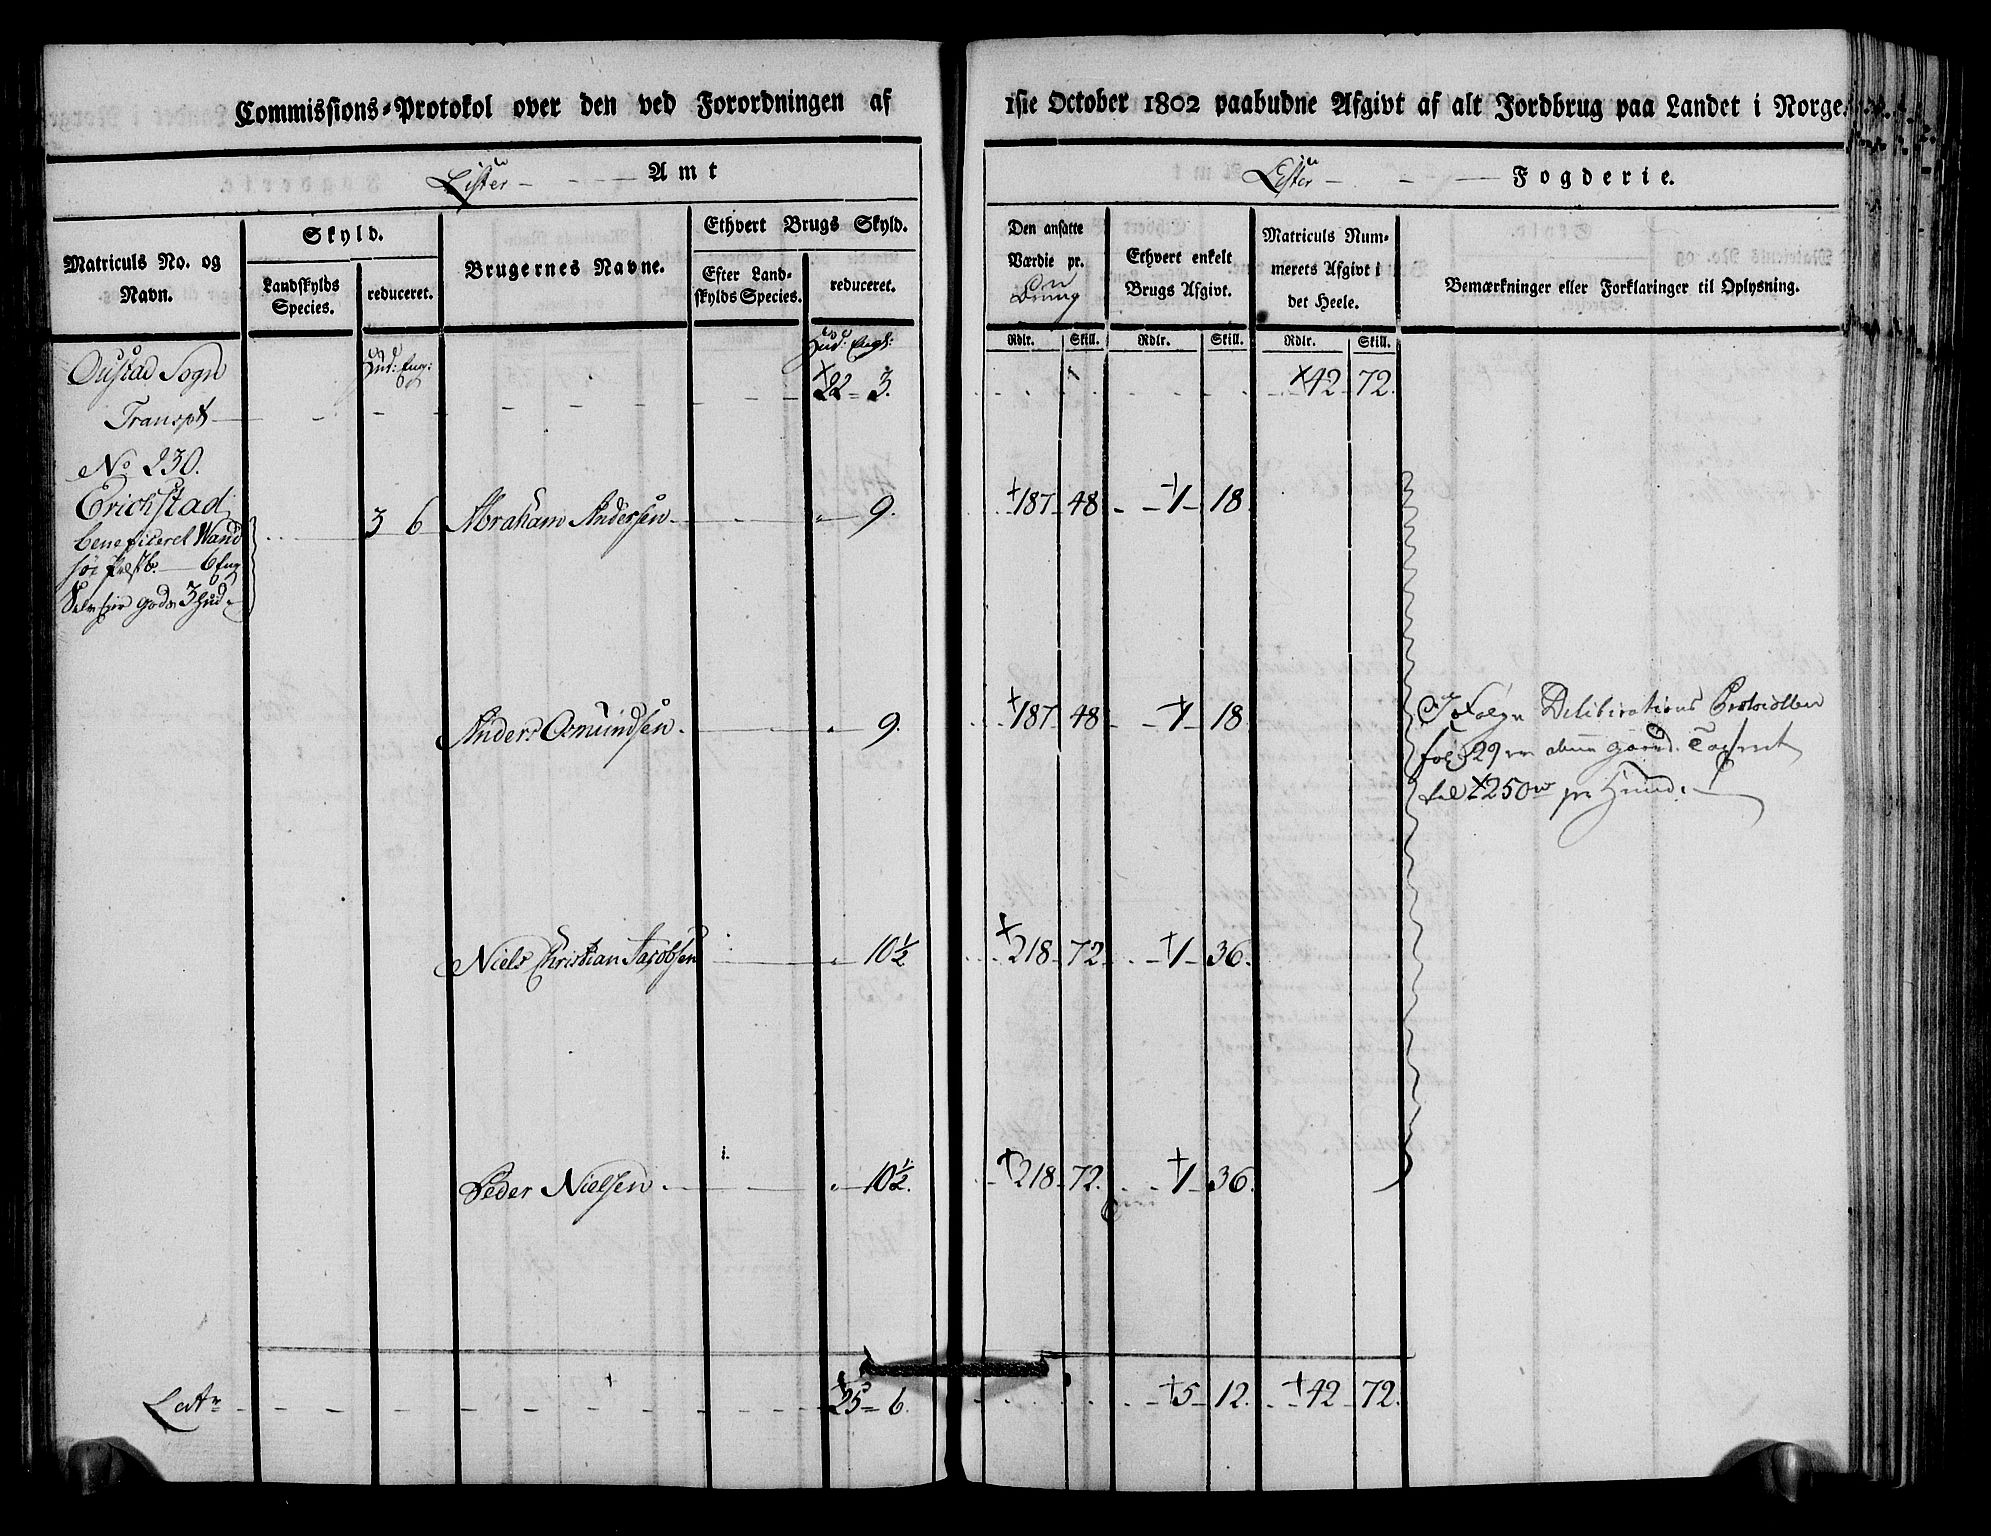 Commissions-Protokol over den ved Forordningen af
1ste October 1802 paabudne Afgivt af alt Jordbrug paa Landet i Norge.
Lister Amt
Lister Fogderie.
Matriculs No. og Navn.
Skyld.
Landskylds Species.
reduceret.
Brugernes Navne.
Ethvert Brugs Skyld.
Efter Landskylds Species.
reduceret.
Den ansatte Værdie pr.
Ethvert enkelt Brugs Afgivt.
Matriculs Nummerets Afgivt i det Heele.
Bemærkninger eller Forklaringer til Oplysning.
Rdlr. Skill. Rdlr. Skill. Rdlr. Skill.
Hud: Eng:
Hud: Engl:
Sogn
Transpt 22 3. 42 72.
No 230.
Erichstad 3 6 Abraham Andersen 9. 187 48 1 18.
beneficeret
6 Eng
godz 3 Hud.
Anders Osmundsen. 9. 187 48 1 18.
Deliberations Protocollen
fol: 29
til 250 pr Huud.
Niels Christian Jacobsen 10½ 218 72 1 36.
Peder Nielsen. 10½. 218 72. 1 36.
Latr 25 6. 5 12. 42 72.